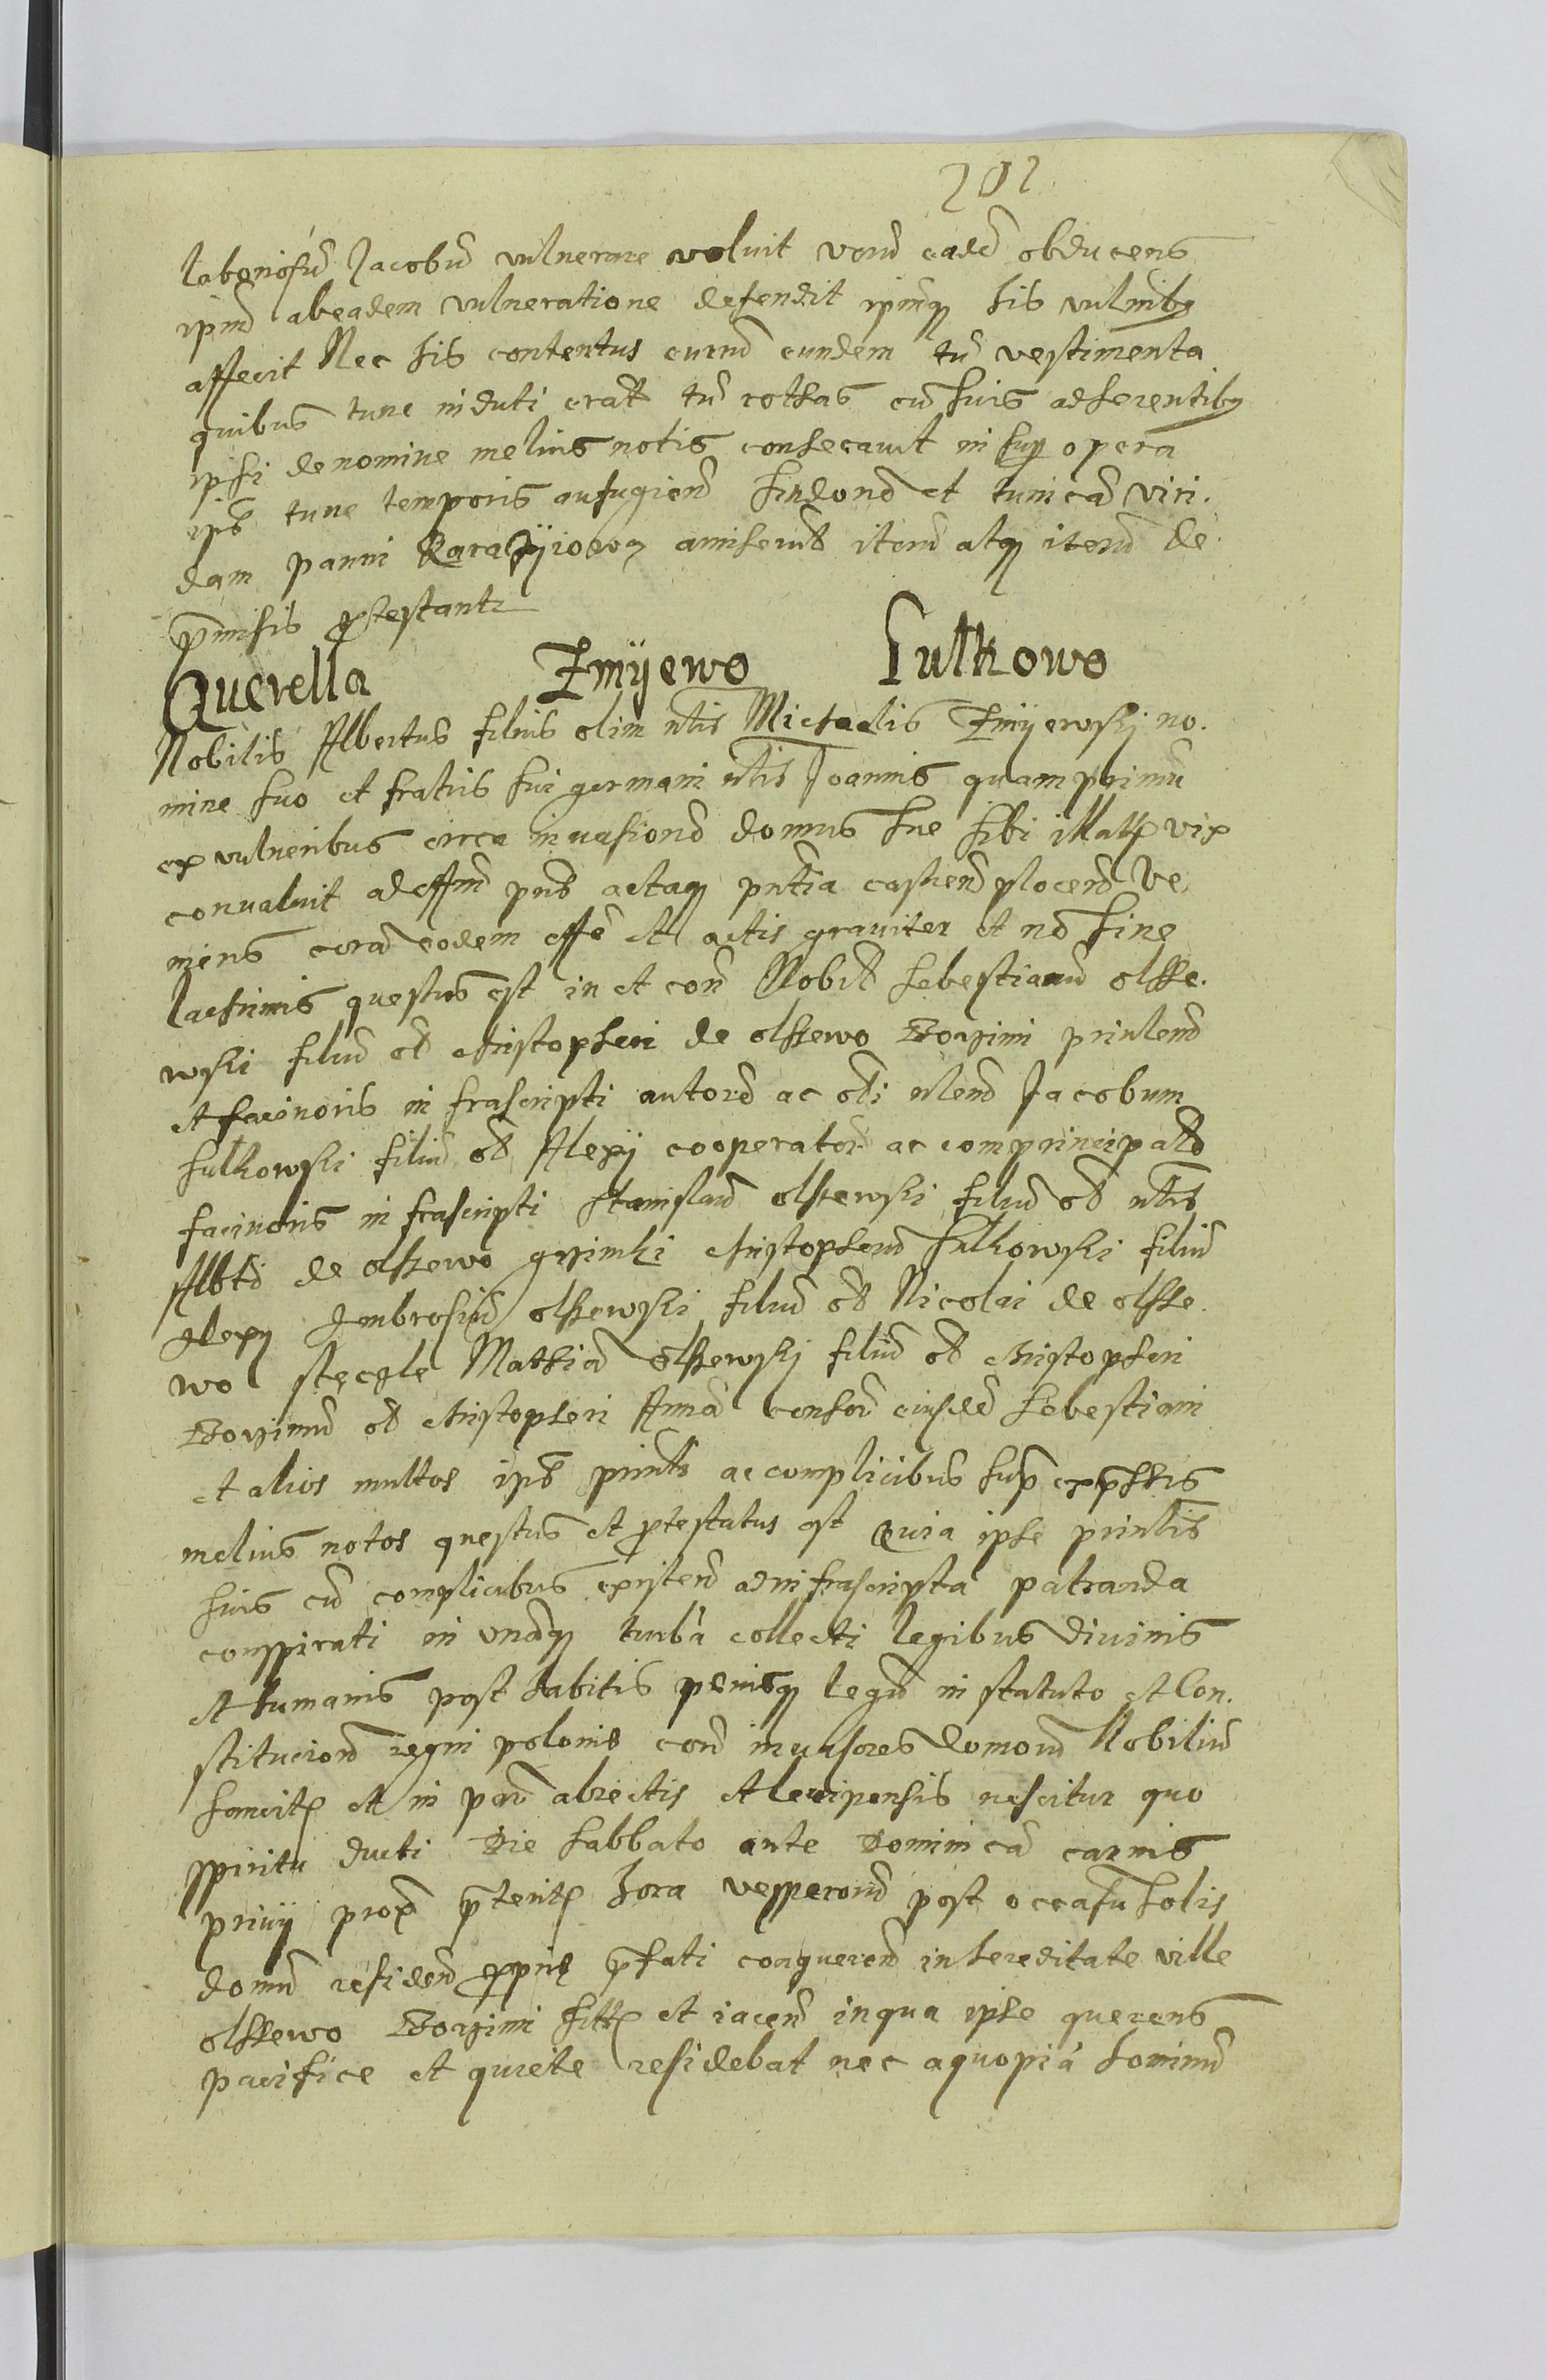 202
laboriosum Jacobum vulnerare voluit verum eadem obducens
ipsum ab eadem vulneratione defendit ipsumq his vulnibq
affecit Nec his contentus currum eundem tum vestimenta
quibus tunc induti erant tum rothas cum suis adherentibq
ipsi de nomine melius notis consecavit in sup opera
ips tunc temporis aufugiend sindond et tunicam viri.
dam panni amiserunt iterum atq iterum de
pmissis protestantr
Querella Zmÿewo Sulkowo
Nobilis Albertus filius olim nlis Michaelis Zmÿewskj no.
mine suo et fratris sui germani nlis Joannis quam primum
ex vulneribus circa invasionem domus sue sibi illatis vix
convaluit ad offm pns actaq pntia castren plocen ve
niens coram eodem offo et actis graviter et no sine
lachrimis questus est in et con Nobil Sebestianum olsse.
wski filium ol christopheri de olssewo Boxzimi prinlem
et facinoris infrascripti autorem ac nlem Jacobum
Sulkowski filium ol Alexÿ cooperatorem ac comprincipalem
facinoris infrascripti Stanislaum olssewski filium ol nlis
Albti de olssewo christopherum Sulkowski filium
Alexÿ Ambrosium olssewski filium ol Nicolai de olsse.
wo Mathiam olssewskj filium ol christopheri
Boxzimum ol christopheri Annam consor eiusdem Sebestiani
et alios multos ips prinli ac complicibus sup expssis
melius notos questus et protestatus est Quia ipse prinlis
suis cum complicibus existen ad infrascripta patranda
conspirati in unamq turbam collecti legibus divinis
et humanis post habitis penisq legum in statuto et Con.
stitucion regni polonie con invasores domorum Nobilium
sancitis et in parvi abiectis et levipensis nescitur quo
spiritu ducti Die sabbato ante Dominicam carnis
privÿ prox pteritis hora vesperorum post occasum solis
domum residen proprie pfati conqueren in hereditate ville
olssewo Boxzimi sitt et iacen in qua ipse querens
pacifice et quiete residebat nec a quopiam hominum